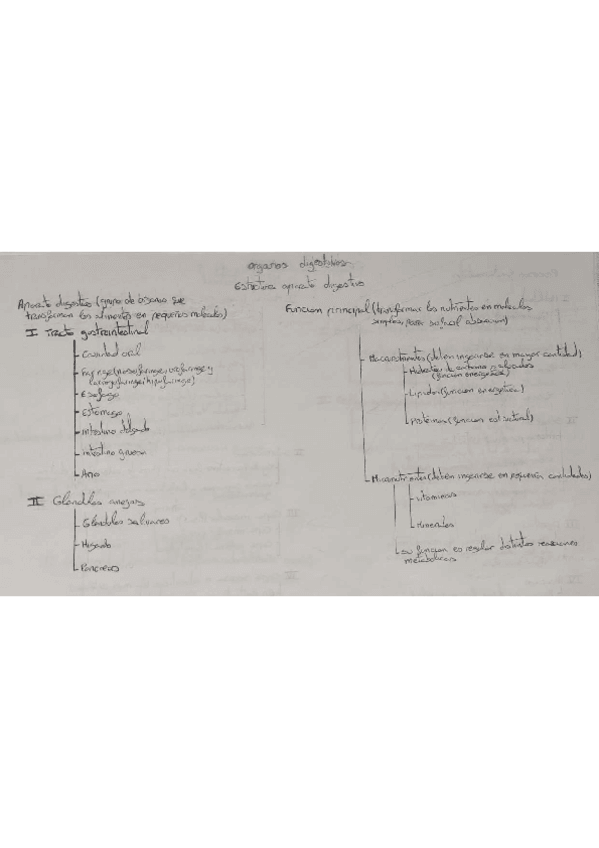 organos digestivos
Estructura aparato digestivo
Aparato digestivo (grupo de organos que
transforman los alimentos en pequeñas moleculas)
I Tracto gastrointestinal
Cavidad oral
Faringe (nasofaringe, orofaringe y
laringofaringe/hipofaringe)
Esofago
Estomago
Intestino delgado
intestino grueso
Ano
II Glandulas anejas
Glandulas salivares
Higado
Pancreas
Funcion principal (transformar los nutrientes en moleculas
simples para su final absorcion)
Macronutrientes (deben ingerirse en mayor cantidad)
Hidratos de carbono o
(funcion energetica)
Lipidos (funcion energetica)
Proteinas (funcion estructural)
Micronutrientes (deben ingerirse en pequeñas cantidades)
vitaminas
Minerales
su funcion es regular distintas reacciones
metabolicas